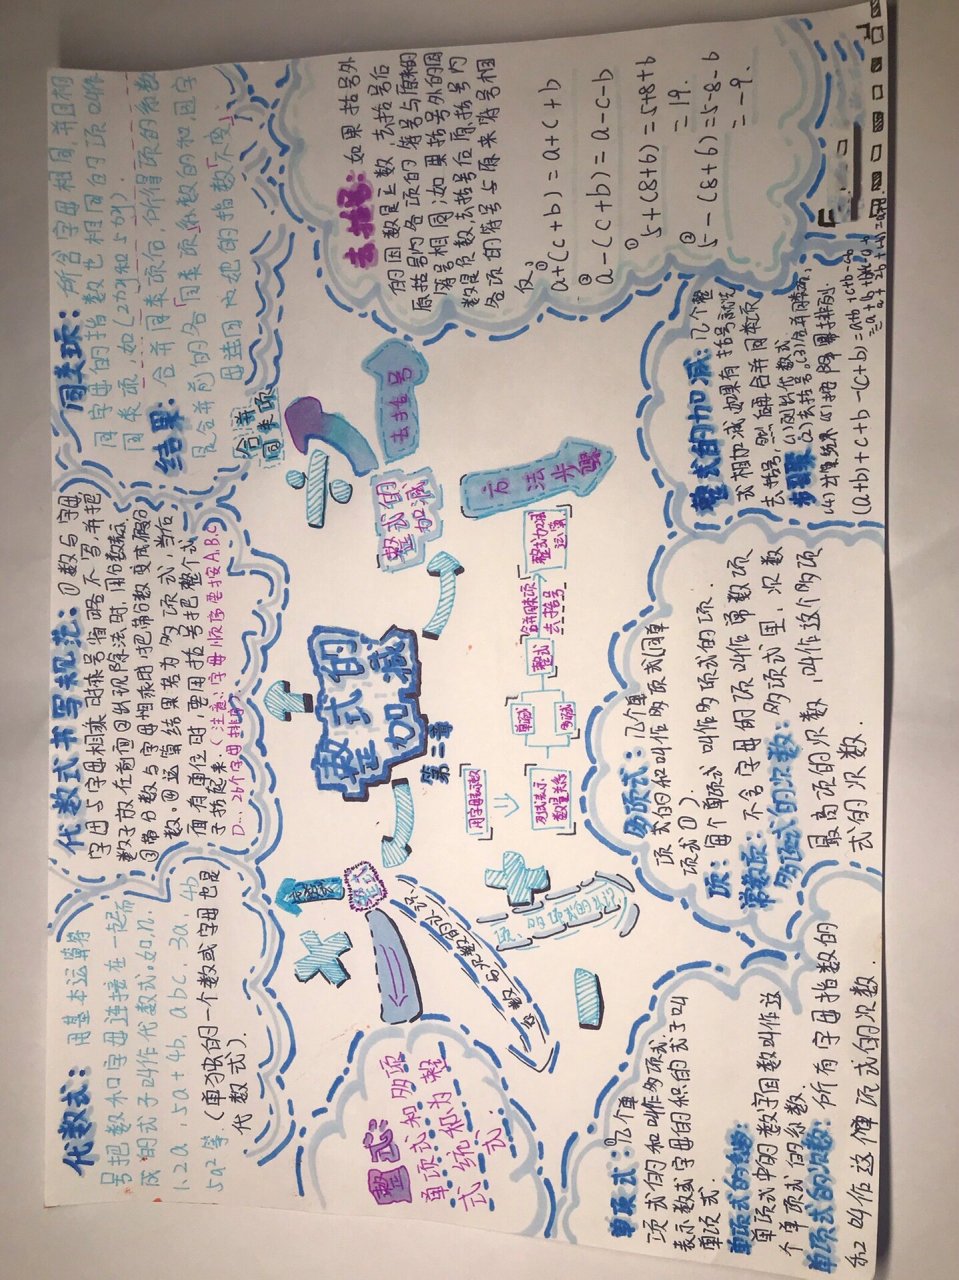 代数式：用基本运算符
号把数和字母连接在一起而
成的式子叫作代数式。如：n.
1.2a , 5a+4b, abc, 3a, 4b
5a²等.(单独的一个数或字母也是
代数式).
代数式书写规范：①数与字母
字母与字母相乘时乘号省略不写,并把
数字放在前面②出现除法时,用分数表示
③带分数与字母相乘时,把带分数变成假分
数。④运算结果若为多项式,当后
面有单位时,要用括号把整个式
子括起来.(注意:字母顺序要按A.B.C
D…26个字母排序)
同类项：所含字母相同,并且相
同字母的指数也相同的项叫作
同类项,如(2πx和5πx).
结果：合并同类项后,所得项的系数
是合并前的各同类项系数的和,且字
母连同它的指数不变.
合并
同类项
整式：
单项式和多项
式统称为整
式.
整式
整式的
加减
去括号
整式的
加减
第二章
方法步骤
单项式
多项式
整式
合并同类项
去括号
整式加减
运算
数量关系
去括号：如果括号外
的因数是正数,去括号后
原括号内各项的符号与原来的
符号相同;如果括号外的因
数是负数,去括号后原括号内
各项的符号与原来符号相
反,
① a+(c+b)=a+c+b
② a-(c+b)=a-c-b
① 5+(8+6)=5+8+6
=19.
② 5-(8+6)=5-8-6
=-9.
单项式：几个单
项式的和叫作多项式.
表示数或字母的积的式子叫
单项式
单项式的系数：
单项式中的数字因数叫作这
个单项式的系数.
单项式的次数：所有字母指数的
和叫作这个单项式的次数.
多项式：几个单
项式的和叫作多项式(同单
项式①).
项：每个单项式叫作多项式的项.
常数项：不含字母的项叫作常数项
多项式的次数：多项式里,次数
最高项的次数,叫作这个多项
式的次数.
整式的加减：几个整
式相加减,如果有括号就先
去括号,然后再合并同类项
步骤：(1)列出代数式
(2)去括号.(3)合并同类项,
(a+b)+c+b-(c+b)=a+b+c+b-c-b